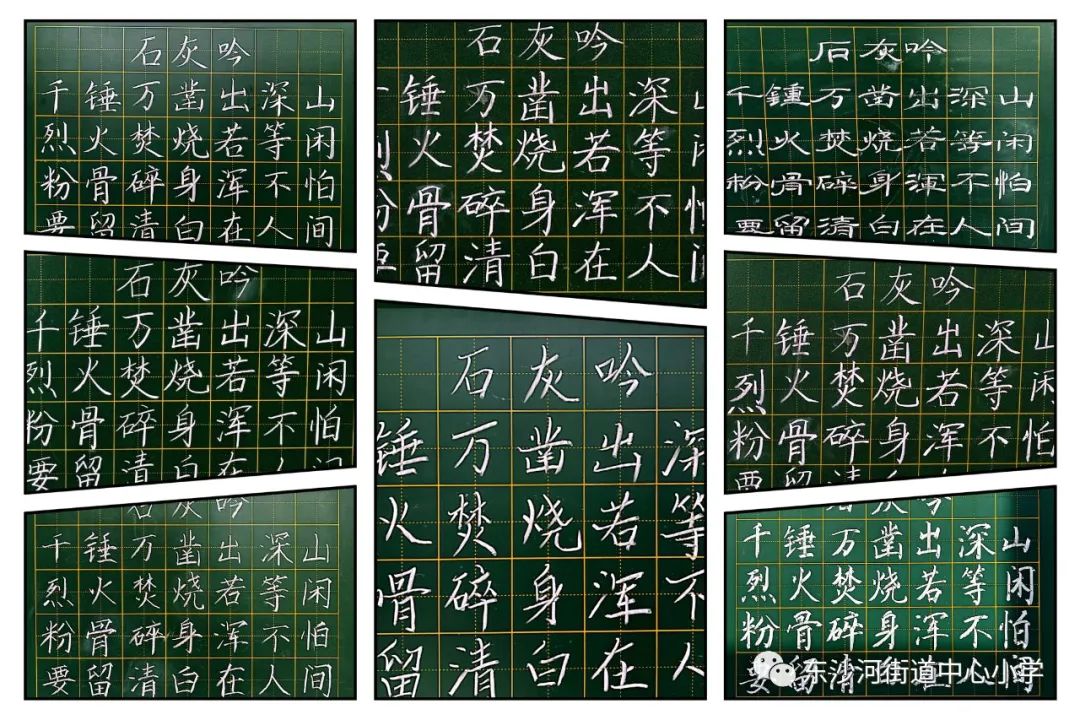 石灰吟
千锤万凿出深山
烈火焚烧若等闲
粉骨碎身浑不怕
要留清白在人间
石灰吟
锤万凿出深
火焚烧若等
粉骨碎身浑不怕
留清白在人
石灰吟
千鍾万凿出深山
烈火焚烧若等闲
粉骨碎身渾不怕
要留清白在人间
石灰吟
千锤万凿出深山
烈火焚烧若等闲
粉骨碎身浑不怕
要留清白在人间
石灰吟
锤万凿出深
火焚烧若等
骨碎身浑不
留清白在人
石灰吟
千锤万凿出深山
烈火焚烧若等闲
粉骨碎身浑不怕
要留清白在
石灰吟
千锤万凿出深山
烈火焚烧若等闲
粉骨碎身浑不怕
要留清白在人间
灰吟
千锤万凿出深山
烈火焚烧若等闲
粉骨碎身浑不怕
要留清
东沙河街道中心小学